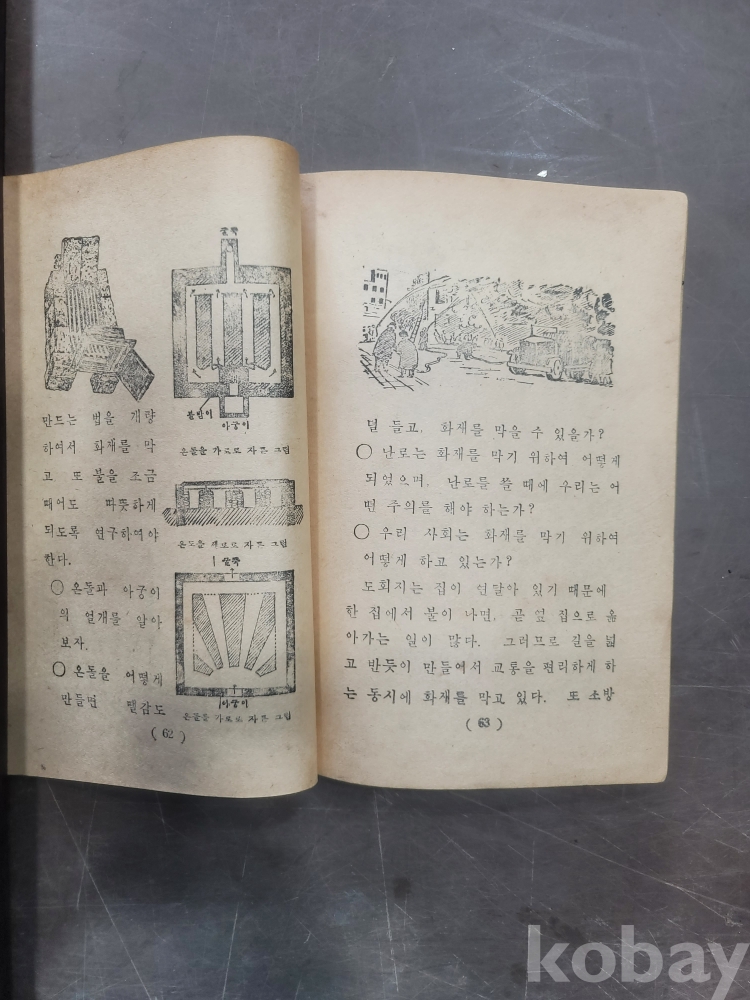 굴뚝
불받이
아궁이
온돌을 가로로 자른 그림
만드는 법을 개량
하여서 화재를 막
고 또 불을 조금
때어도 따뜻하게
되도록 연구하여야
한다.
온돌을 세로로 자른 그림
굴뚝
○ 온돌과 아궁이
의 얼개를 알아
보자.
○ 온돌을 어떻게
만들면 땔감도
아궁이
온돌을 가로로 자른 그림
( 62 )
덜 들고, 화재를 막을 수 있을가?
○ 난로는 화재를 막기 위하여 어떻게
되었으며, 난로를 쓸 때에 우리는 어
떤 주의를 해야 하는가?
○ 우리 사회는 화재를 막기 위하여
어떻게 하고 있는가?
도회지는 집이 연달아 있기 때문에
한 집에서 불이 나면, 곧 옆 집으로 옮
아가는 일이 많다. 그러므로 길을 넓
고 반듯이 만들어서 교통을 편리하게 하
는 동시에 화재를 막고 있다. 또 소방
( 63 )
kobay